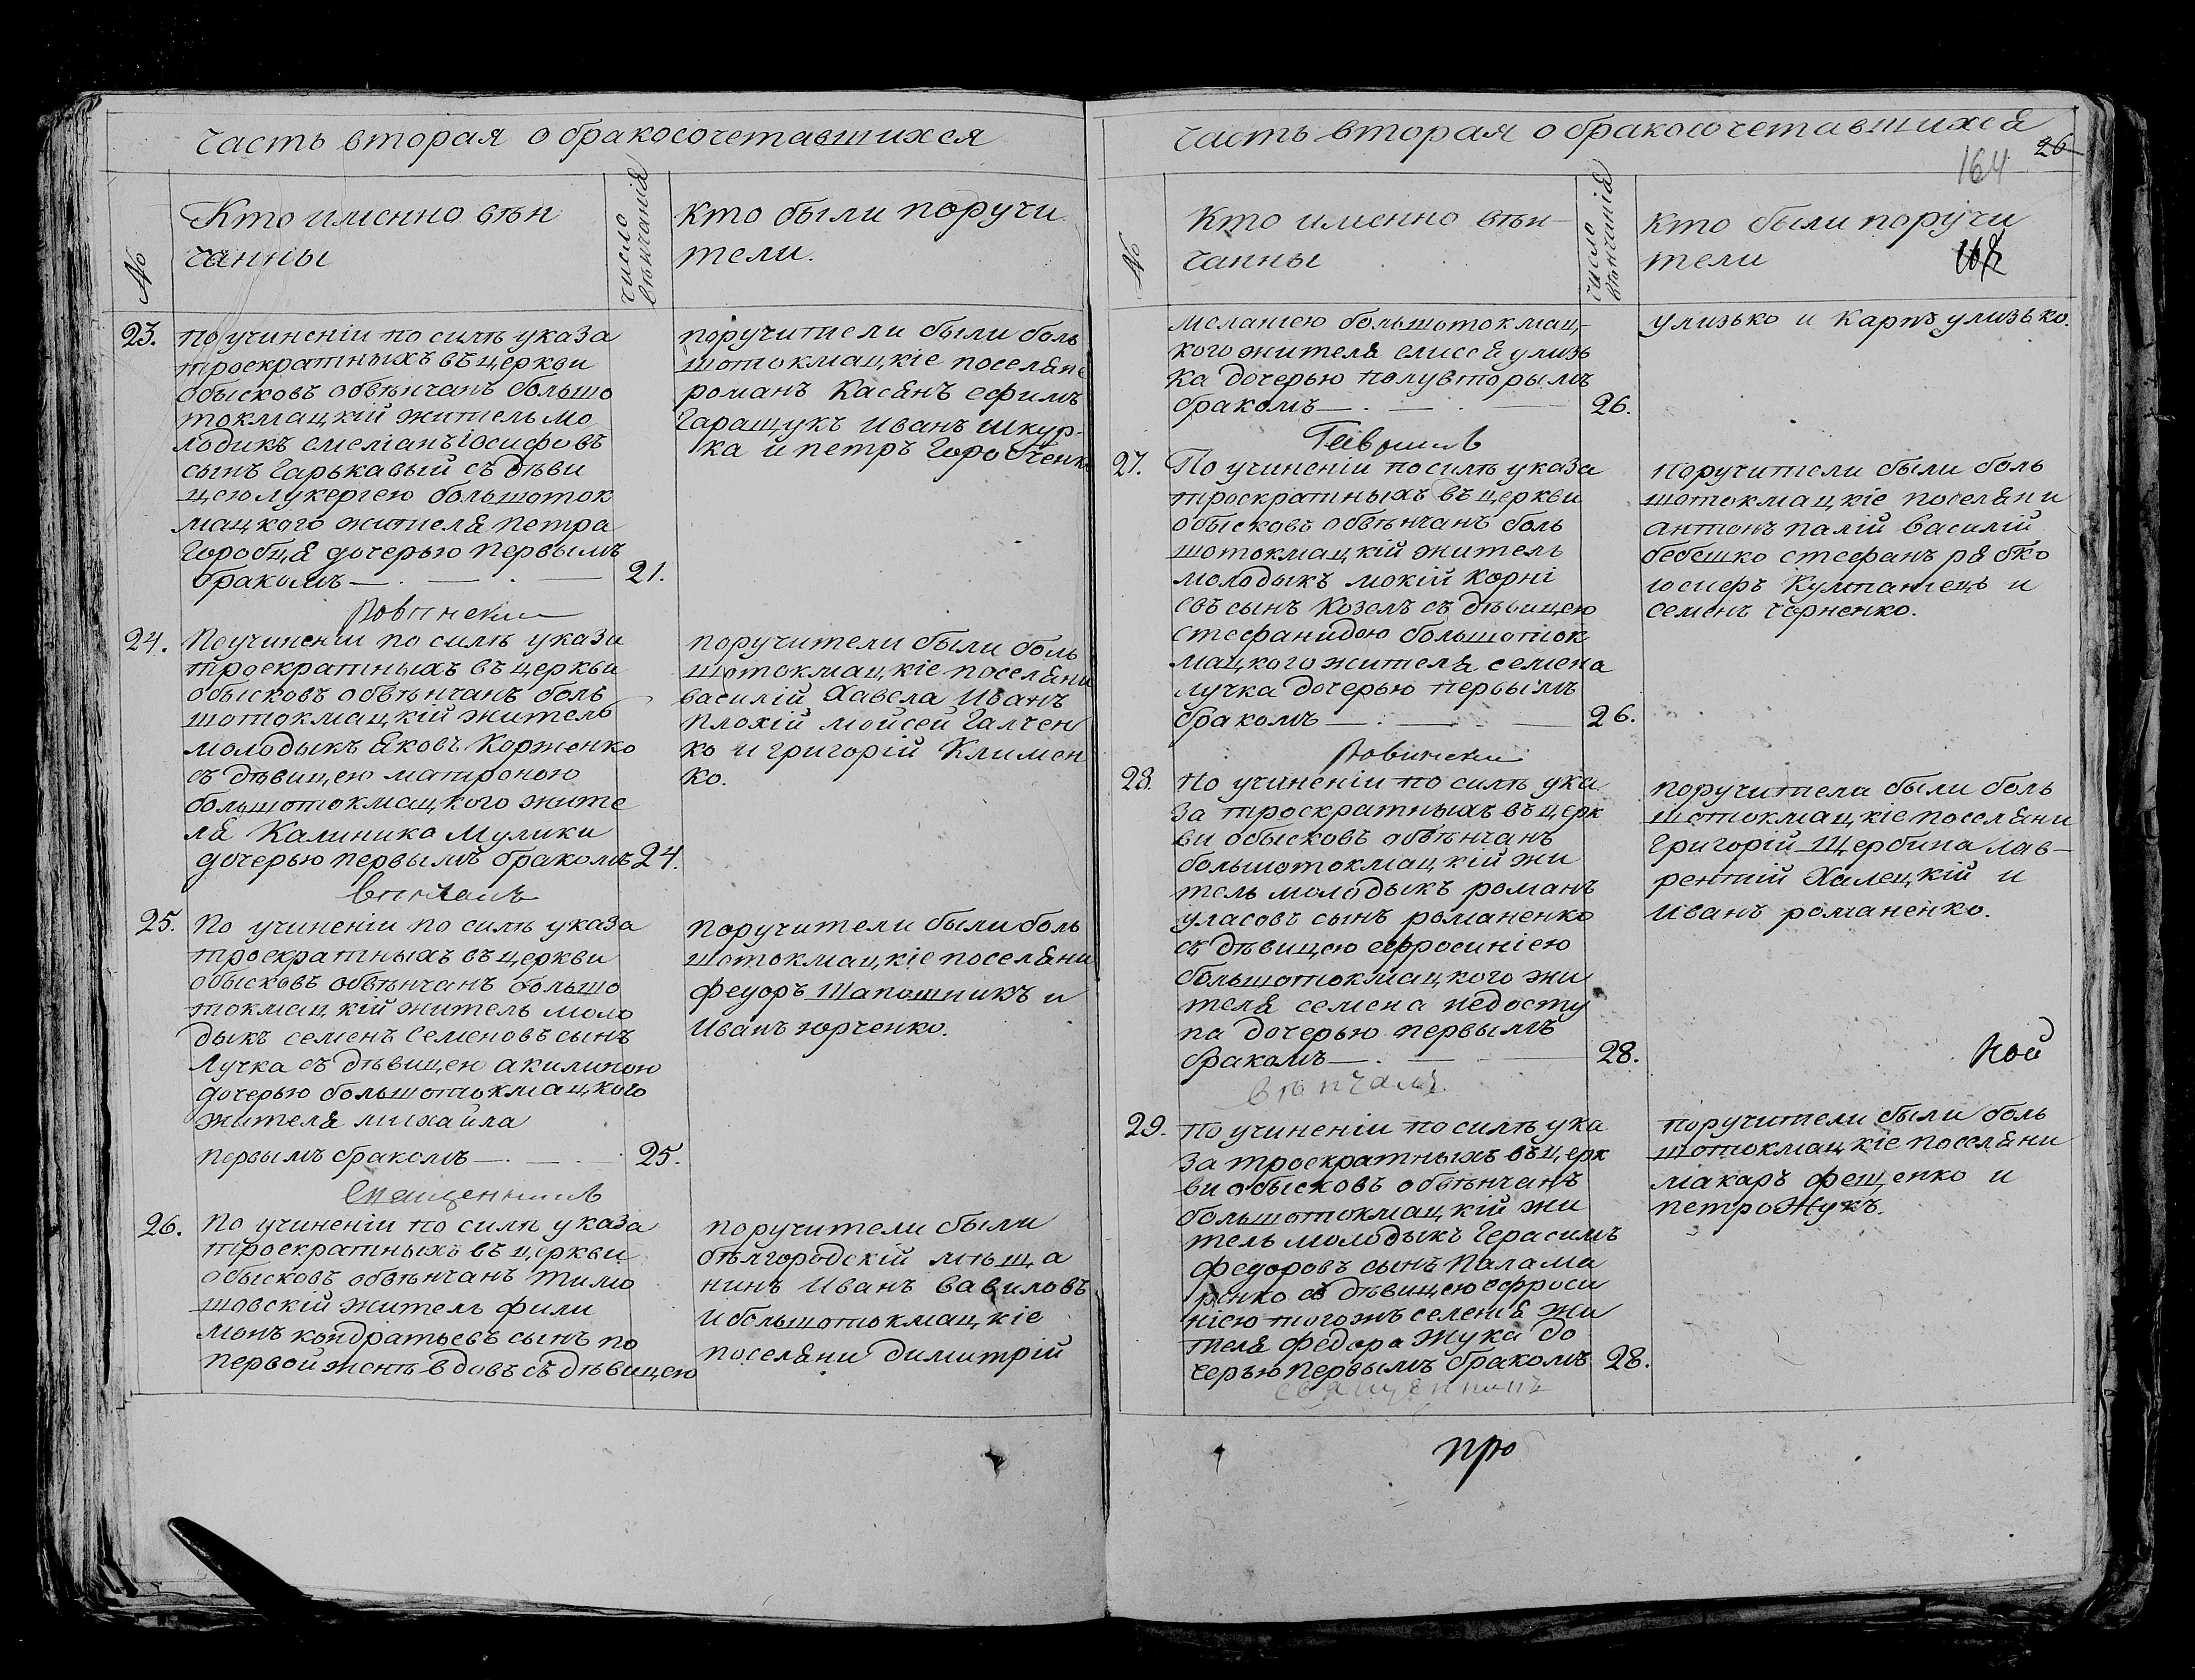 часть вторая о бракосочетавшихся
№
Кто именно вѣн
чанны
число
вѣнчанія
кто были поручи
тели.
23.
по учиненіи по силѣ указа
троекратныхъ въ церкви
обысковъ обвѣнчанъ большо
токмацкій житель мо
лодикъ емеліанъ іосифовъ
сынъ гарькавый съ дѣви
цею лукергею большоток
мацкого жителя петра
горобця дочерью первымъ
бракомъ
21.
поручители были боль
шотокмацкіе поселяне
романъ Касянъ ефимъ
Гаращукъ иванъ шкур-
ка и петръ Горобченко
24.
По учиненіи по силѣ указа
троекратныхъ въ церкви
обысковъ обвѣнчанъ боль
шотокмацкій житель
молодыкъ яковъ Корженко
съ дѣвицею матроною
большотокмацкого жите
ля Калиника мулики
дочерью первымъ бракомъ
24.
поручители были боль
шотокмацкіе поселяни
василій Хавела иванъ
плохій мойсей Галчен
ко и григорій Климен
ко.
25.
По учиненіи по силѣ указа
троекратныхъ въ церкви
обысковъ обвѣнчанъ большо
токмацкій житель моло
дыкъ семенъ семеновъ сынъ
лучка съ дѣвицею акилиною
дочерью большотокмацкого
жителя михайла
первымъ бракомъ
25.
поручители были боль
шотокмацкіе поселяни
федоръ шапошникъ и
иванъ юрченко.
26.
По учиненіи по силѣ указа
троекратныхъ въ церкви
обысковъ обвѣнчанъ тимо
шовскій житель фили
монъ кондратьевъ сынъ по
первой женѣ вдовъ съ дѣвицею
поручители были
бѣлгородскій мѣща
нинъ иванъ вавиловъ
и большотокмацкіе
поселяни димитрій
часть вторая о бракосочетавшихся
26
164
№
кто именно вѣн-
чанны
число
вѣнчанія
кто были поручи
тели
меланіею большотокмац-
кого жителя елисея улизь
ка дочерью полувторымъ
бракомъ
26.
улизько и карпъ улизько.
27.
По учиненіи по силѣ указа
троекратныхъ въ церкви
обысковъ обвѣнчанъ боль
шотокмацкій житель
молодыкъ мокій корні
евъ сынъ козелъ съ дѣвицею
стефанидою большоток
мацкого жителя семена
лучка дочерью первымъ
бракомъ
26.
поручители были боль
шотокмацкіе поселяни
антонъ палій василій
бебешко стефанъ рябко
іосифъ и
семенъ чорненко.
28.
по учиненіи по силѣ ука
за троекратныхъ въ церк
ви обысковъ обвѣнчанъ
большотокмацкій жи
тель молодыкъ романъ
уласовъ сынъ романенко
съ дѣвицею ефросиніею
большотокмацкого жи
теля семена недосту
па дочерью первымъ
бракомъ
28.
вѣнчалъ
поручители были боль
шотокмацкіе поселяни
григорій щербина лав-
рентій Халецкій и
иванъ романенко.
ной
29.
по учиненіи по силѣ ука
за троекратныхъ въ церк
ви обысковъ обвѣнчанъ
большотокмацкій жи
тель молодыкъ герасимъ
федоровъ сынъ палама
ренко съ дѣвицею ефроси
ніею тогожъ селенія жи
теля федора жука до
черью первымъ бракомъ
28.
священникъ
поручители были боль
шотокмацкіе поселяни
макаръ фещенко и
петро жукъ.
про